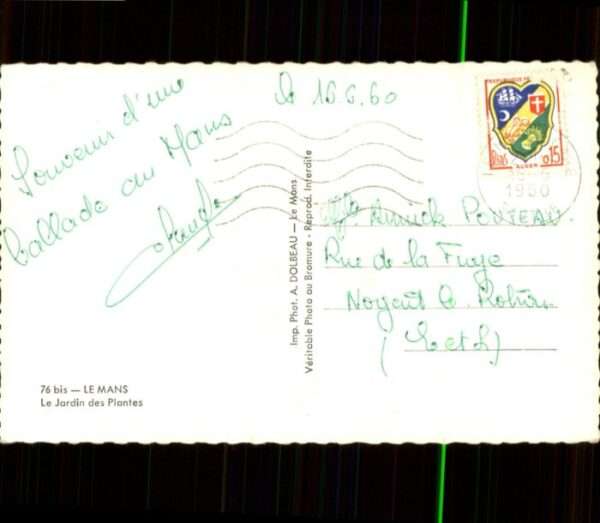 le 16.6.60
Souvenir d'une
ballade au Mans
REPUBLIQUE FR
ALGER
0,15
1960
Annick POUTEAU.
Rue de la Fuye
Nogent le Rotrou
(E et L)
Imp. Phot. A. DOLBEAU — Le Mans
Véritable Photo au Bromure - Reprod. Interdite
76 bis — LE MANS
Le Jardin des Plantes